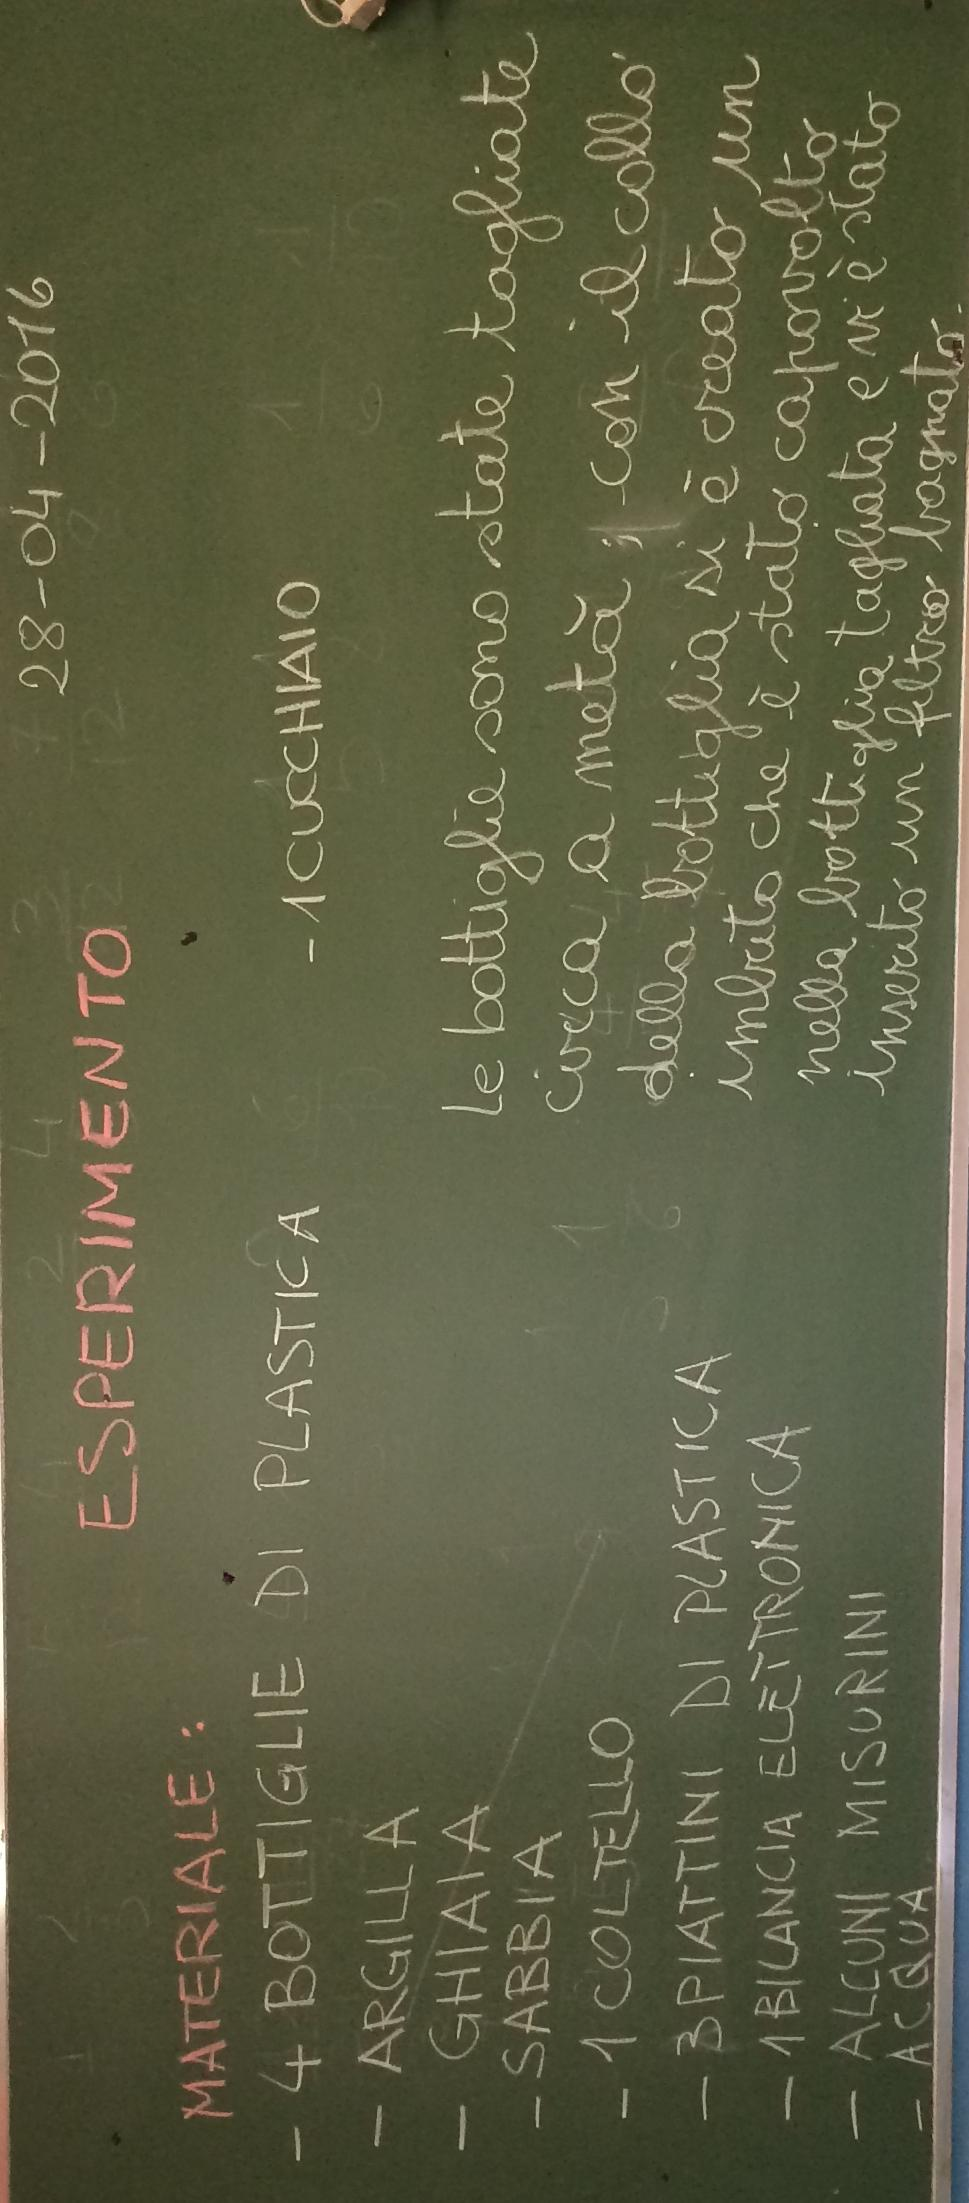 28-04-2016
ESPERIMENTO
MATERIALE:
- 4 BOTTIGLIE DI PLASTICA
- 1 CUCCHIAIO
- ARGILLA
- GHIAIA
- SABBIA
- 1 COLTELLO
- 3 PIATTINI DI PLASTICA
- 1 BILANCIA ELETTRONICA
- ALCUNI MISURINI
- ACQUA
Le bottiglie sono state tagliate
circa a metà; con il collo
della bottiglia si è creato un
imbuto che è stato capovolto
nella bottiglia tagliata e vi è stato
inserito un filtro bagnato.